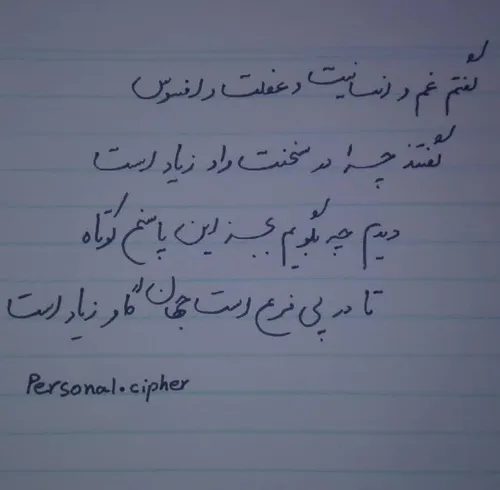 گفتم غم و انسانیت و غفلت و افسوس
گفتند چرا در سخنت واو زیاد است
دیدم چه بگویم بجز این پاسخ کوتاه
تا در پی فرع است جهان "گاو زیاد است
Personal.cipher